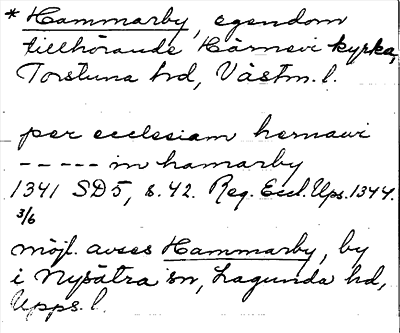 * Hammarby, egendom
tillhörande Härnevi kyrka,
Torstuna hd, Västm. l.
per ecclesiam hernawi
----- in hamarby
1341 SD5, s. 42. Reg. Eccl. Ups. 1344.
3/6
möjl. avses Hammarby, by
i Nysätra sn, Lagunda hd,
Upps. l.